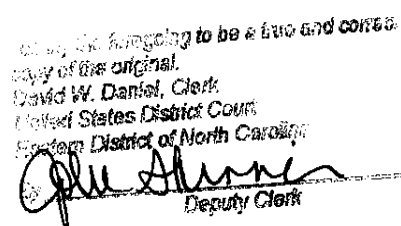 the foregoing to be a true and correc
copy of the original.
David W. Daniel, Clerk
United States District Court
Eastern District of North Carolina
By
Deputy Clerk